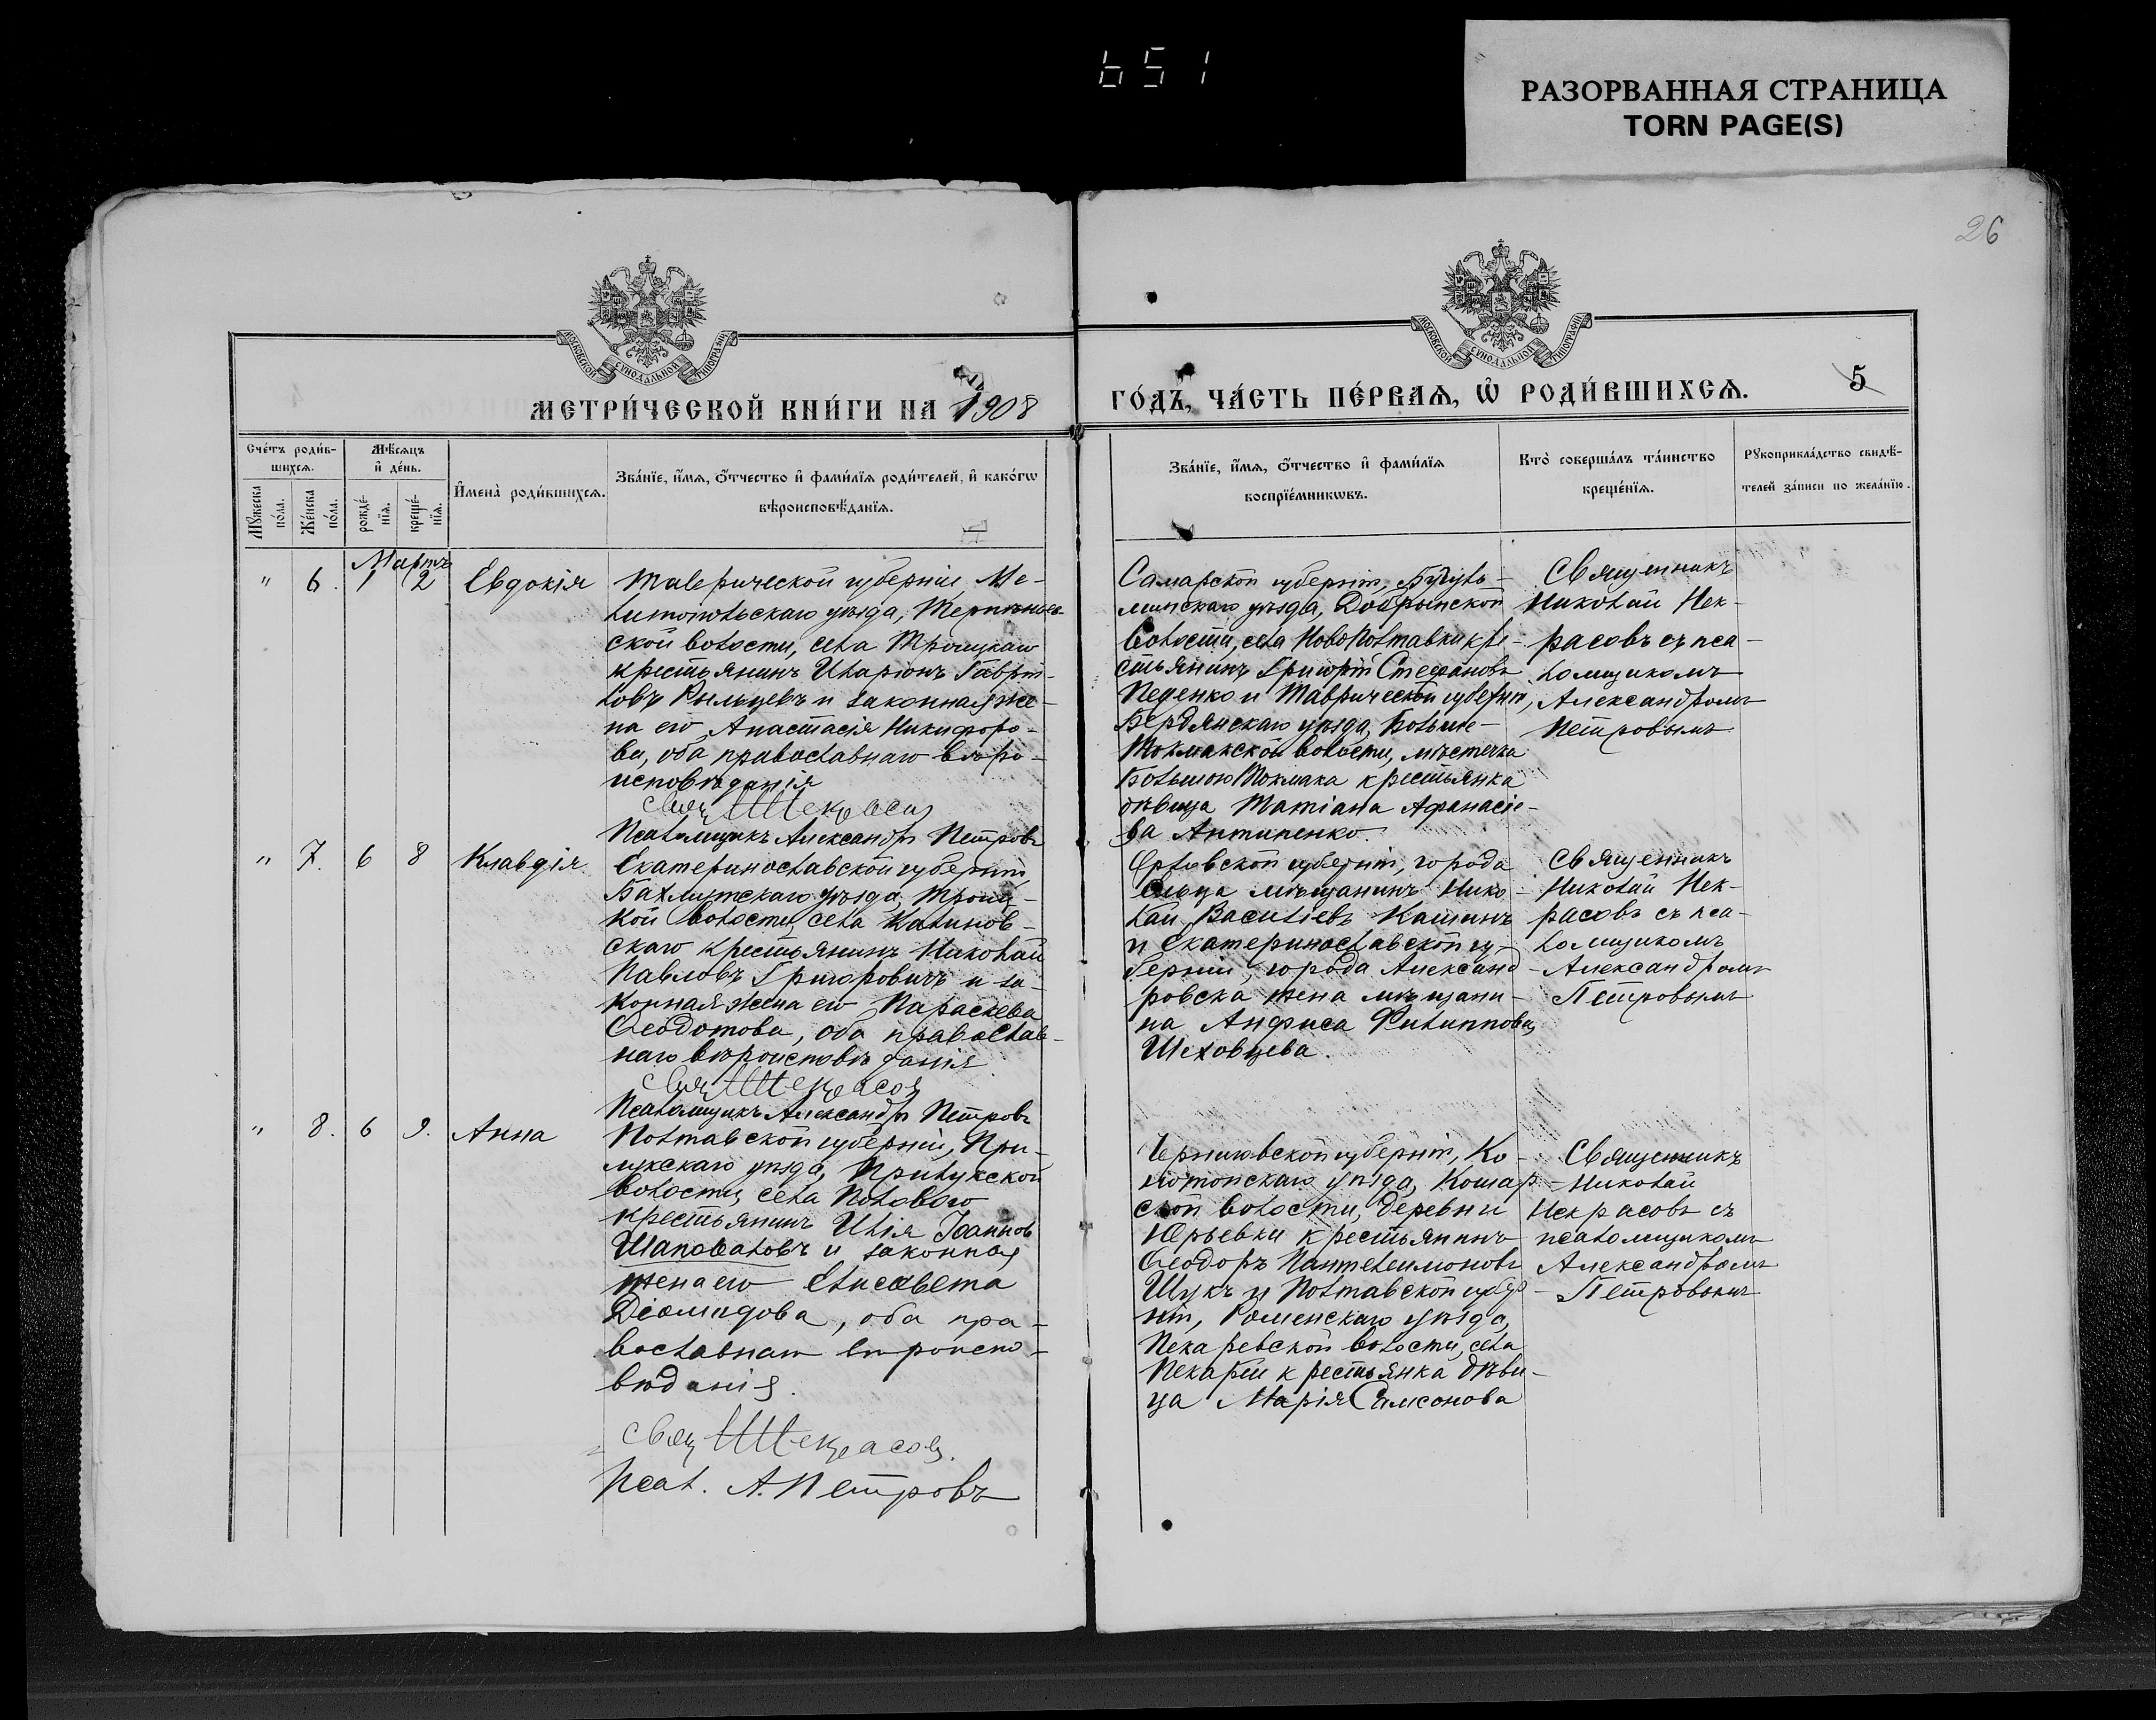 651
РАЗОРВАННАЯ СТРАНИЦА
TORN PAGE(S)
26
МОСКОВСКОЙ СѴНОДАЛЬНОЙ ТИПОГРАФІИ
МОСКОВСКОЙ СѴНОДАЛЬНОЙ ТИПОГРАФІИ
МЕТРИ́ЧЕСКОЙ КНИ́ГИ НА 1908
ГО́ДЪ, ЧА́СТЬ ПЕ́РВАѦ, Ѡ҆ РОДИ́ВШИХСѦ.
5
Сче́тъ роди́в-
шихсѧ.
Мѣ́сѧцъ
и҆ де́нь.
Мꙋ́жеска
по́ла.
Же́нска
по́ла.
рожде́-
нїѧ.
креще́-
нїѧ.
И҆мена̀ роди́вшихсѧ.
Зва́нїе, и҆́мѧ, ѻ҆́тчество и҆ фами́лїѧ роди́телей, и҆ како́гѡ
вѣроисповѣ́данїѧ.
Зва́нїе, и҆́мѧ, ѻ҆́тчество и҆ фами́лїѧ
воспрїе́мникѡвъ.
Кто̀ соверша́лъ та́инство
креще́нїѧ.
Рꙋкоприкла́дство свидѣ́-
телей за́писи по жела́нїю.
Мартъ
" 6. 1 2 Евдокія
Таверической губерніи Ме-
литопольскаго уѣзда, Терпѣньев-
ской волости, села Троицкаго
крестьянинъ Иларіонъ Гаврі-
ловъ Рыльцевъ и законная же-
на его Анастасія Никифоро-
ва, оба православнаго вѣро-
исповѣданія
Свящ Н Некрасов
Псаломщикъ Александръ Петровъ
Самарской губерніи, Бугуль-
минскаго уѣзда, Добрынской
волости, села Новополтавки кре-
стьянинъ Григорій Стефановъ
Педенко и Таврической губерніи,
Бердянскаго уѣзда, Больше-
Токмакской волости, мѣстечка
Большого Токмака крестьянка
дѣвица Татіана Афанасіе-
ва Антипенко.
Священникъ
Николай Нек-
расовъ съ пса-
ломщикомъ
Александромъ
Петровымъ
" 7. 6 8 Клавдія
Екатеринославской губерніи,
Бахмутскаго уѣзда, Троиц-
кой волости, села Калинов-
скаго крестьянинъ Николай
Павловъ Григоровичъ и за-
конная жена его Параскева
Ѳеодотова, оба православ-
наго вѣроисповѣданія
Свящ Н Некрасов
Псаломщикъ Александръ Петровъ
Орловской губерніи, города
Ельца мѣщанинъ Нико-
лай Василіевъ Кашинъ
и Екатеринославской гу-
берніи, города Александ-
ровска жена мѣщани-
на Анфиса Филиппова
Шеховцева.
Священникъ
Николай Нек-
расовъ съ пса-
ломщикомъ
Александромъ
Петровымъ
" 8. 6 9. Анна
Полтавской губерніи, При-
лукскаго уѣзда, Прилукской
волости, села Полового
крестьянинъ Илія Іоанновъ
Шаповаловъ и законная
жена его Елисавета
Діомидова, оба пра-
вославнаго вѣроиспо-
вѣданія.
Свящ Н Некрасов.
Псал. А. Петровъ
Черниговской губерніи, Ко-
нотопскаго уѣзда, Кошар-
ской волости, деревни
Юрьевки крестьянинъ
Ѳеодоръ Пантелеимоновъ
Щукъ и Полтавской губер-
ніи, Роменскаго уѣзда,
Пекаревской волости, села
Пекарей крестьянка дѣви-
ца Марія Самсонова
Священникъ
Николай
Некрасовъ съ
псаломщикомъ
Александромъ
Петровымъ